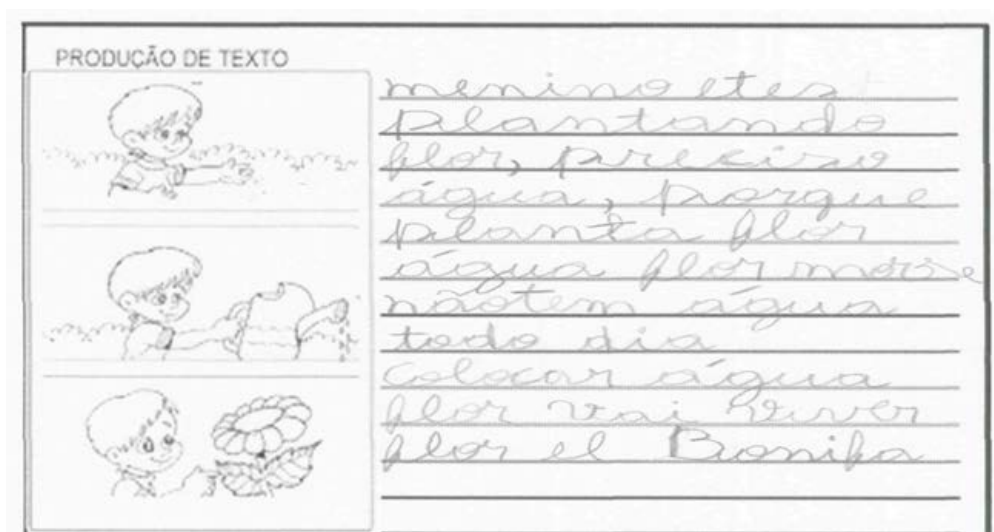 PRODUÇÃO DE TEXTO
menino etes
plantando
flor, precizo
água, porque
planta flor
água flor morre
nãotem água
todo dia
colocar água
flor vai viver
flor el Bonifa